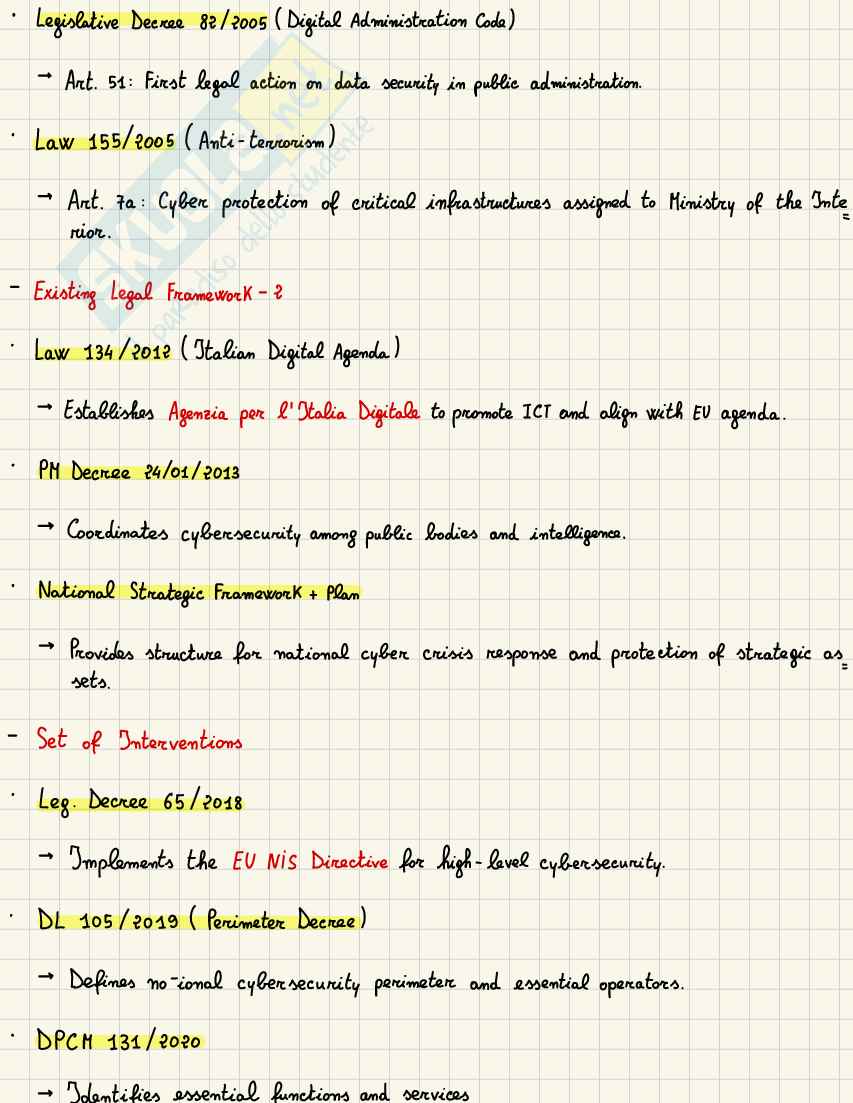 · Legislative Decree 82/2005 (Digital Administration Code)
→ Art. 51: First legal action on data security in public administration.
· Law 155/2005 (Anti-terrorism)
→ Art. 7a: Cyber protection of critical infrastructures assigned to Ministry of the Inte=
rior.
- Existing Legal Framework - 2
· Law 134/2012 (Italian Digital Agenda)
→ Establishes Agenzia per l'Italia Digitale to promote ICT and align with EU agenda.
· PM Decree 24/01/2013
→ Coordinates cybersecurity among public bodies and intelligence.
· National Strategic Framework + Plan
→ Provides structure for national cyber crisis response and protection of strategic as=
sets.
- Set of Interventions
· Leg. Decree 65/2018
→ Implements the EU NiS Directive for high-level cybersecurity.
· DL 105/2019 (Perimeter Decree)
→ Defines no-ional cybersecurity perimeter and essential operators.
· DPCM 131/2020
→ Identifies essential functions and services
SKUOLA.net
paradiso dello studente